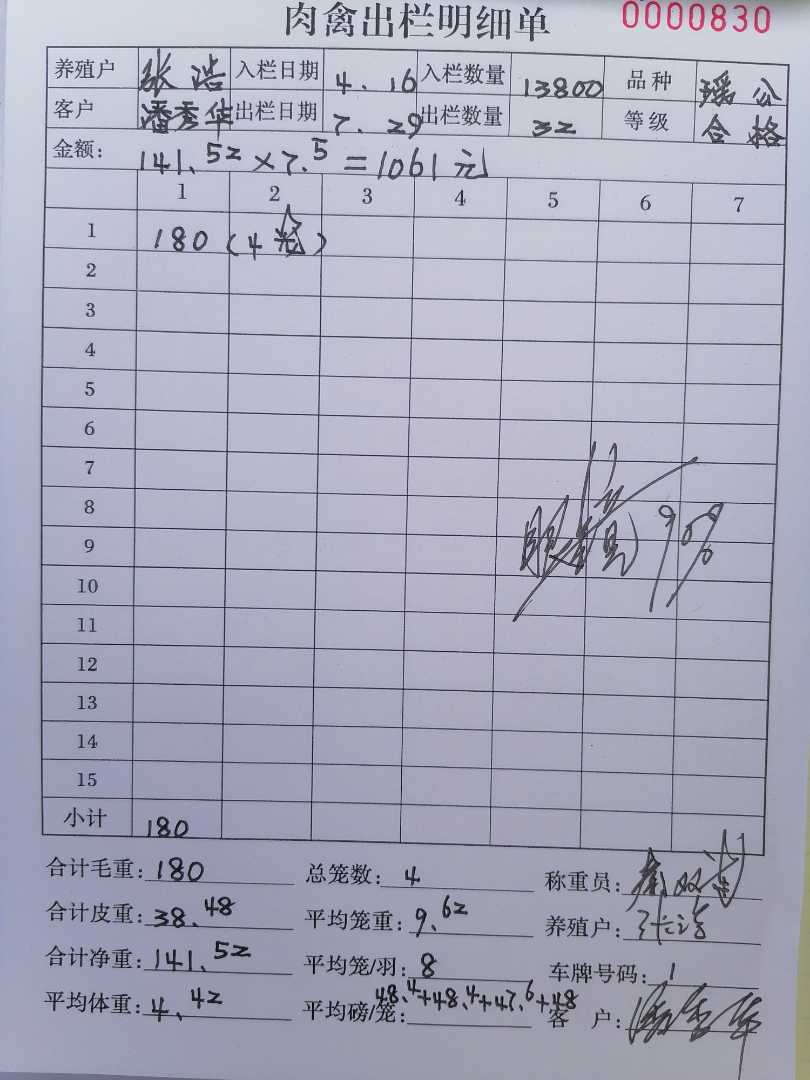 肉禽出栏明细单
0000830
养殖户 张浩 入栏日期 4.16 入栏数量 13800 品种 瑶公
客户 潘秀华 出栏日期 7.29 出栏数量 32 等级 合格
金额: 141.52×7.5=1061元
1 2 3 4 5 6 7
1 180(4笼)
2
3
4
5
6
7
8
9
10
11
12
13
14
15
小计 180
90%
合计毛重: 180 总笼数: 4 称重员:
合计皮重: 38.48 平均笼重: 9.62 养殖户: 张浩
合计净重: 141.52 平均笼/羽: 8 车牌号码: 1
平均体重: 4.42 平均磅/笼: 48.4+48.4+47.6+48 客户: 潘秀华